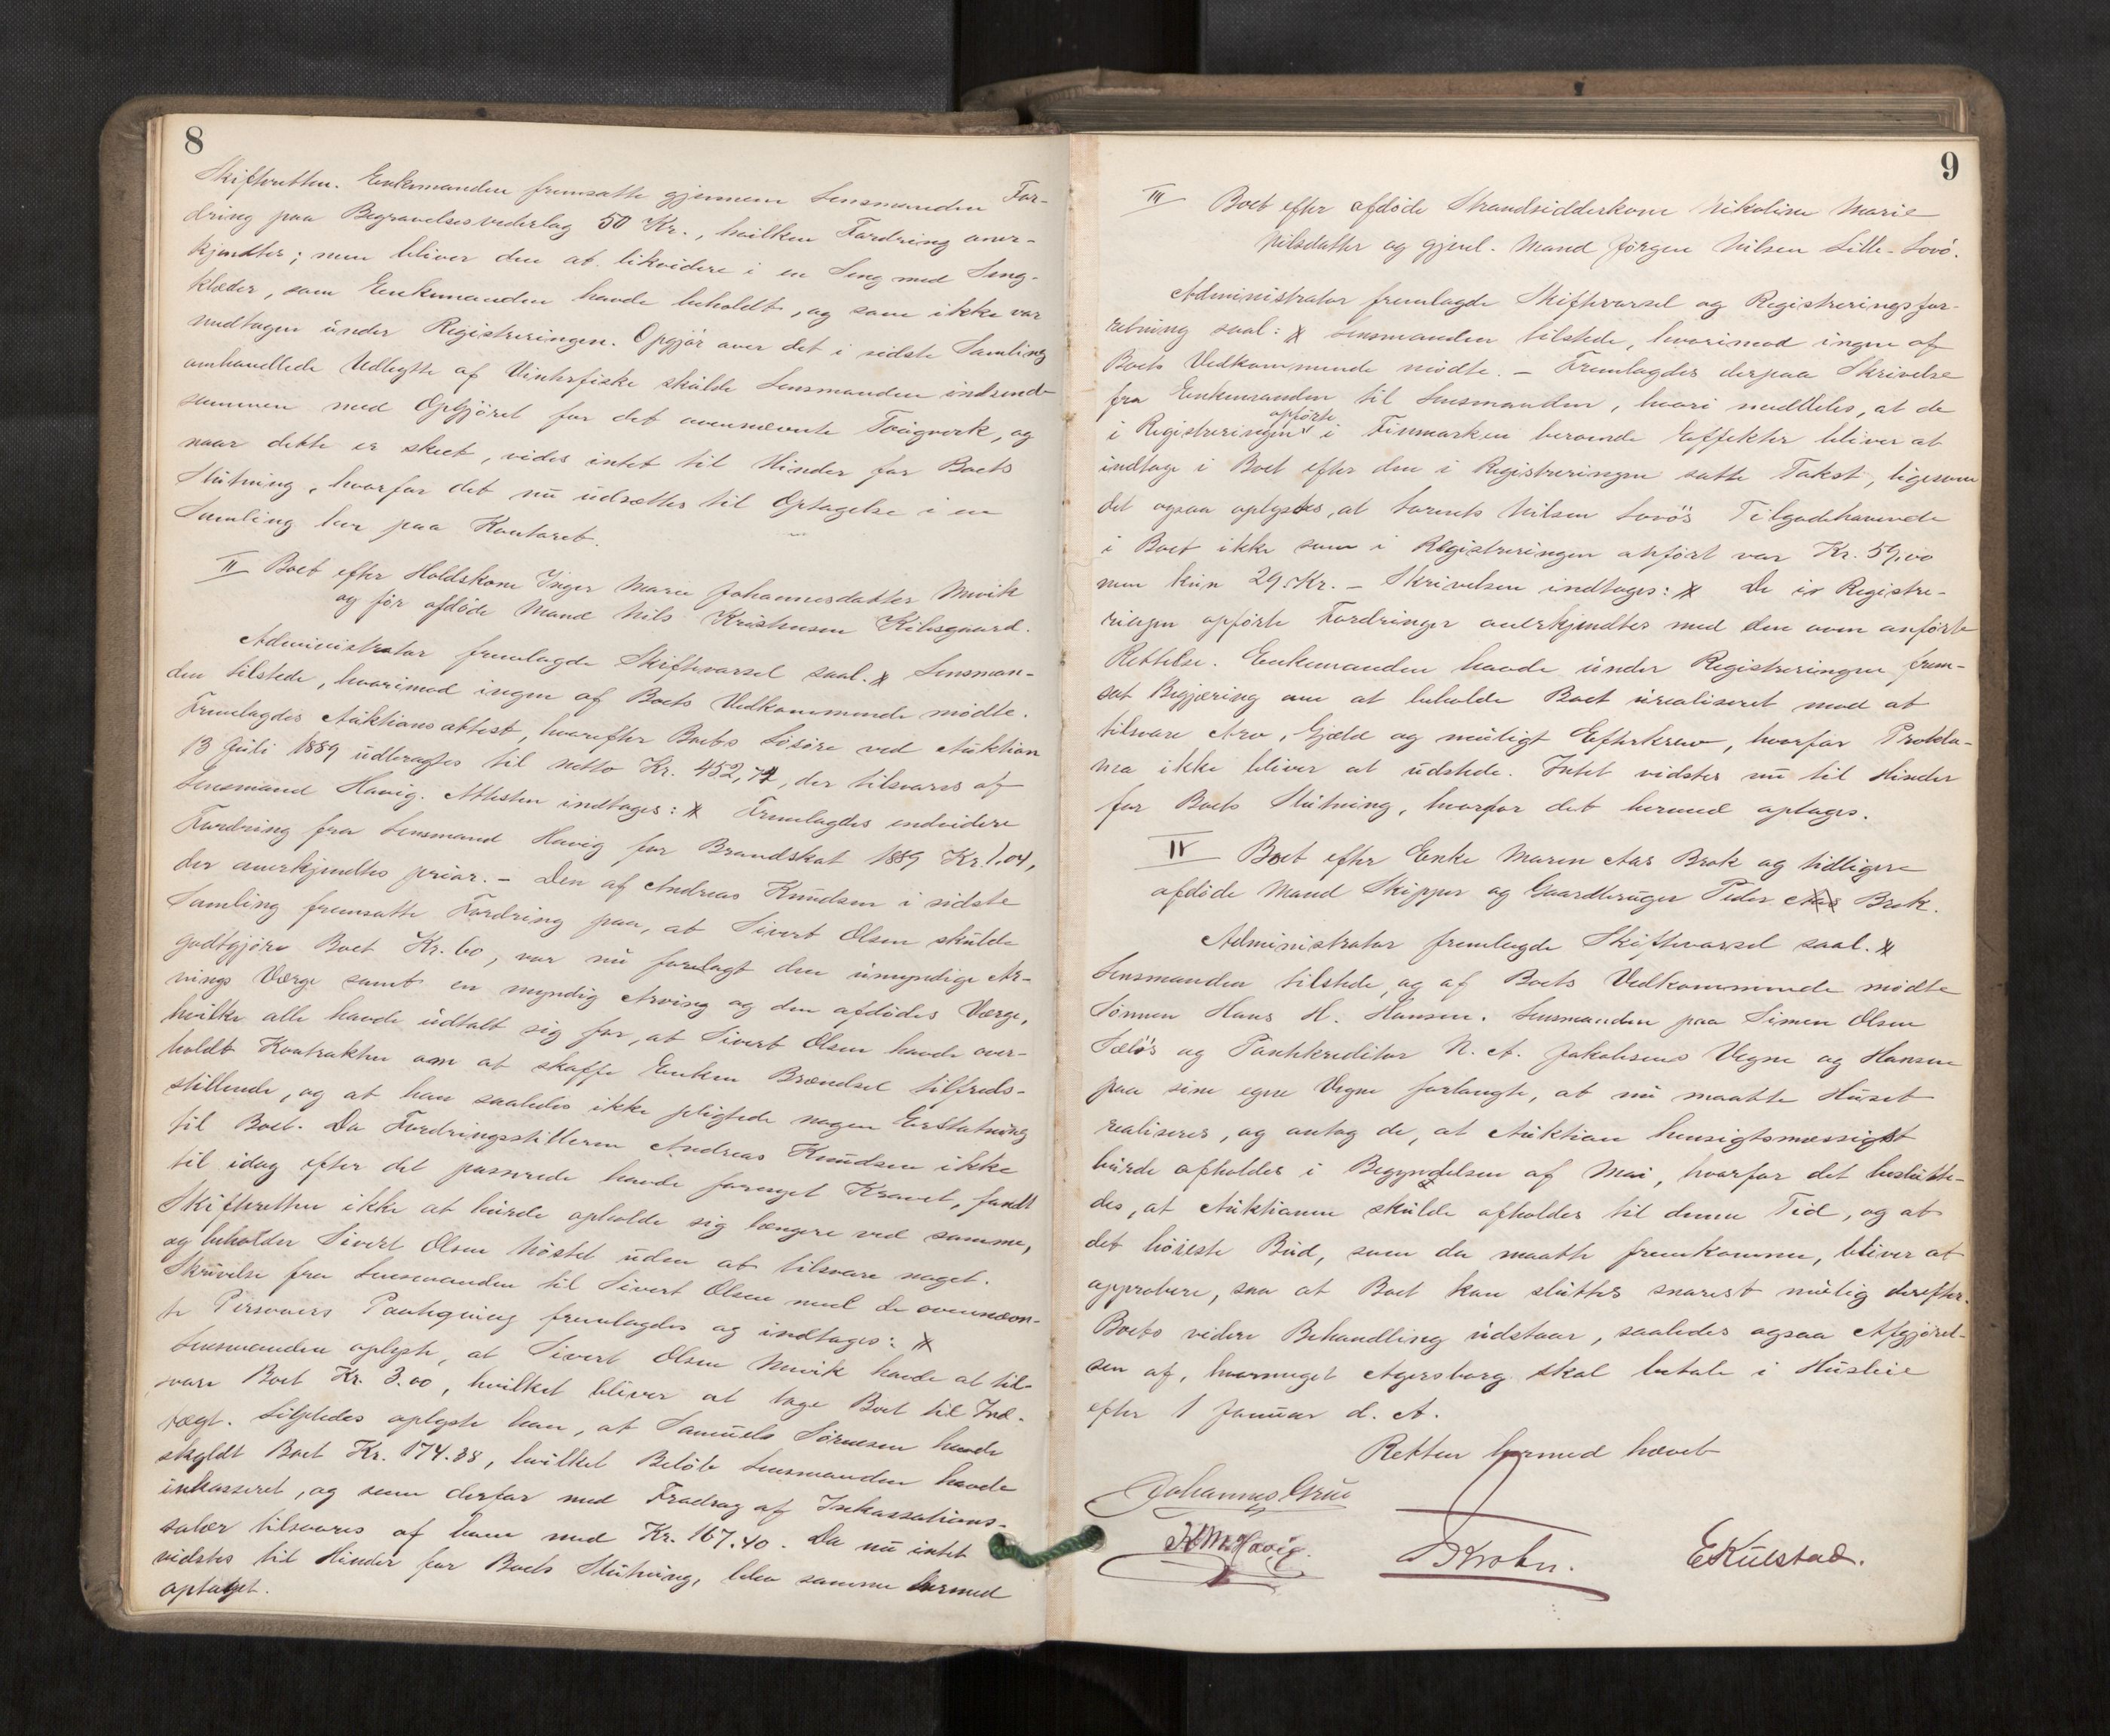 8
Skifteretten. Enkemanden fremsatte gjennem Lensmanden For-
dring paa Begravelsesvederlag 50 Kr., hvilken Fordring aner-
kjendtes; men bliver den at likvidere i en Seng med Seng-
klæder, som Enkemanden havde beholdt, og som ikke var
medtagen under Registreringen. Opgjør over det i sidste Samling
omhandlede Udbytte af Vinterfiske skulde Lensmanden indsende
sammen med Opgjøret for det ovennævnte Tougverk, og
naar dette er skeet, vides intet til Hinder for Boets
Slutning, hvorfor det nu udsættes til Optagelse i en
Samling her paa Kontoret.
II Boet efter Holdskone Inger Marie Johannesdatter Nevik
og før afdøde Mand Nils Kristensen Kilsgaard.
Administrator fremlagde Skiftevarsel saal. Lensman-
den tilstede, hvorimod ingen af Boets Vedkommende mødte.
Fremlagdes Auktionsattest, hvorefter Boets Løsøre ved Auktion
13 Juli 1889 udbragtes til netto Kr. 452,74, der tilsvares af
Lensmand Havig. Attesten indtages: Fremlagdes endvidere
Fordring fra Lensmand Havig for Brandskat 1889 Kr. 1.04,
der anerkjendtes prior. – Den af Andreas Knudsen i sidste
Samling fremsatte Fordring paa, at Sivert Olsen skulde
godtgjøre Boet Kr. 60, var nu forelagt den umyndige Ar-
vings Værge samt en myndig Arving og den afdødes Værge,
hvilke alle havde udtalt sig for, at Sivert Olsen havde over-
holdt Kontrakten om at skaffe Enken Brændsel tilfreds-
stillende, og at han saaledes ikke pligtede nogen Erstatning
til Boet. Da Fordringsstilleren Andreas Knudsen ikke
til idag efter det passerede havde forøget Kravet, fandt
Skifteretten ikke at burde opholde sig længere ved samme,
og beholder Sivert Olsen Høstet uden at tilsvare noget.
Skrivelse fra Lensmanden til Sivert Olsen med de ovennævn-
te Personers Paategning fremlagdes og indtages:
Lensmanden oplyste, at Sivert Olsen Nevik havde at til-
svare Boet Kr. 3.00, hvilket bliver at tage Boet til Ind-
tægt. Ligeledes oplyste han, at Samuels Sørensen havde
skyldt Boet Kr. 174.38, hvilket Beløb Lensmanden havde
inkasseret, og som derfor med Fradrag af Inkassations-
salær tilsvares af ham med Kr. 167.40. Da nu intet
vidstes til Hinder for Boets Slutning, blev samme hermed
optaget.
9
III Boet efter afdøde Strandsidderkone Nikoline Marie
Nilsdatter og gjenl. Mand Jørgen Nilsen Lille-Lovø.
Administrator fremlagde Skiftevarsel og Registreringsfor-
retning saal: Lensmanden tilstede, hvorimod ingen af
Boets Vedkommende mødte. – Fremlagdes derpaa Skrivelse
fra Enkemanden til Lensmanden, hvori meddeles, at de
i Registreringen opførte i Finmarken beroende Effekter bliver at
indtage i Boet efter den i Registreringen satte Takst, ligesom
det ogsaa oplystes, at Lorents Nilsen Lovø's Tilgodehavende
i Boet ikke som i Registreringen anført var Kr. 59,00
men kun 29 Kr. – Skrivelsen indtages: De i Registre-
ringen opførte Fordringer anerkjendtes med den oven anførte
Rettelse. Enkemanden havde under Registreringen frem-
sat Begjæring om at beholde Boet urealiseret mod at
tilsvare Arv, Gjæld og muligt Efterkrav, hvorfor Prokla-
ma ikke bliver at udstede. Intet vidstes nu til Hinder
for Boets Slutning, hvorfor det hermed optages.
IV Boet efter Enke Maren Aas Brek og tidligere
afdøde Mand Skipper og Gaardbruger Peder Aas Brek.
Administrator fremlagde Skiftevarsel saal.
Lensmanden tilstede, og af Boets Vedkommende mødte
Sønnen Hans H. Hansen. Lensmanden paa Simen Olsen
Sælø's og Pantekreditor N. A. Jakobsens Vegne og Hansen
paa sine egne Vegne forlangte, at nu maatte Huset
realiseres, og antog de, at Auktion hensigtsmæssigst
burde afholdes i Begyndelsen af Mai, hvorfor det beslutte-
des, at Auktionen skulde afholdes til denne Tid, og at
det høieste Bud, som da maatte fremkomme, bliver at
approbere, saa at Boet kan sluttes snarest mulig derefter.
Boets videre Behandling udstaar, saaledes ogsaa Afgjørel-
sen af, hvormeget Agersborg skal betale i Husleie
efter 1 Januar d. A.
Retten hermed hævet
Johannes Grüe
Havig. Krohn. E Kulstad.